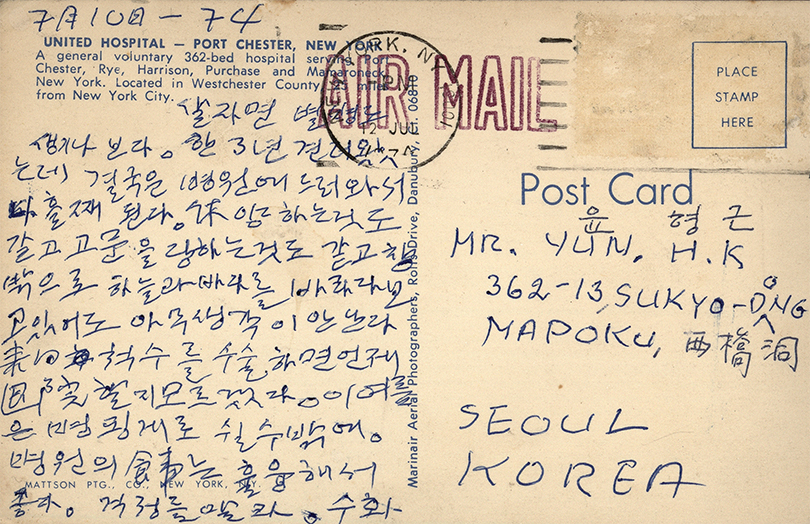 7月10日 - 74
UNITED HOSPITAL — PORT CHESTER, NEW YORK
A general voluntary 362-bed hospital serving Port
Chester, Rye, Harrison, Purchase and Mamaroneck,
New York. Located in Westchester County, 25 miles
from New York City.
살자면 별일도
생기나 보다。 한 3년 견디왔
는데 결국은 병원에 드러와서
사흘째 된다。 休養하는것도
같고 고문을 당하는것도 같고 창
밖으로 하늘과 바다를 바라다보
고있어도 아무생각이 안난다
척수를 수술하면 언제
할지 모르겠다。 이 여름
은 병핑계로 쉴수밖에。
병원의 食事는 훌륭해서
좋다。 걱정들 말라。 수화
MATTSON PTG., CO., NEW YORK, NY.
Marinair Aerial Photographers, Rolf's Drive, Danubury, Ct. 06810
NEW YORK, N.Y.
PM
12 JUL
AIR MAIL
PLACE
STAMP
HERE
Post Card
윤 형 근
MR. YUN, H.K
362-13, SUKYO-DONG
MAPOKU, 西橋洞
SEOUL
KOREA